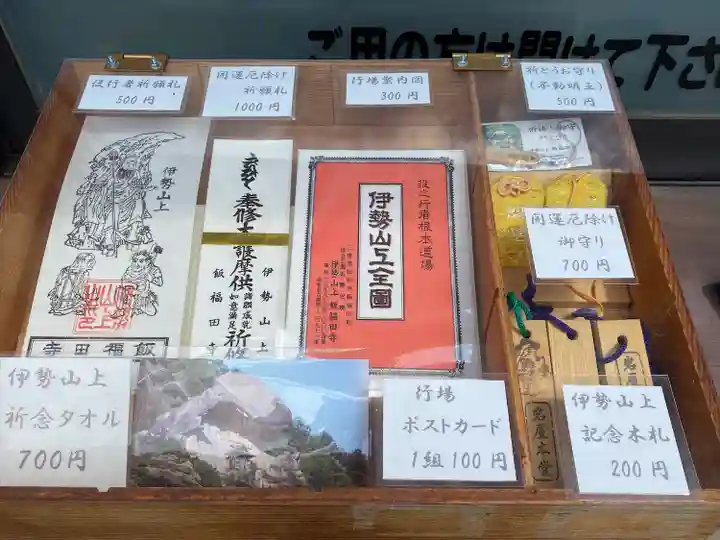 ご用の方は開けて下さ
役行者祈願札
500円
開運厄除け
祈願札
1000円
行場案内図
300円
祈とうお守り
(不動明王)
500円
伊勢山上
飯福田寺
奉修
護摩供
諸願成就
如意満足
祈
伊勢山上
飯福田寺
役之行者根本道場
伊勢山上全圖
伊勢山上飯福田寺
開運厄除け
御守り
700円
伊勢山上
祈念タオル
700円
行場
ポストカード
1組100円
伊勢山上
記念木札
200円
岩屋本堂